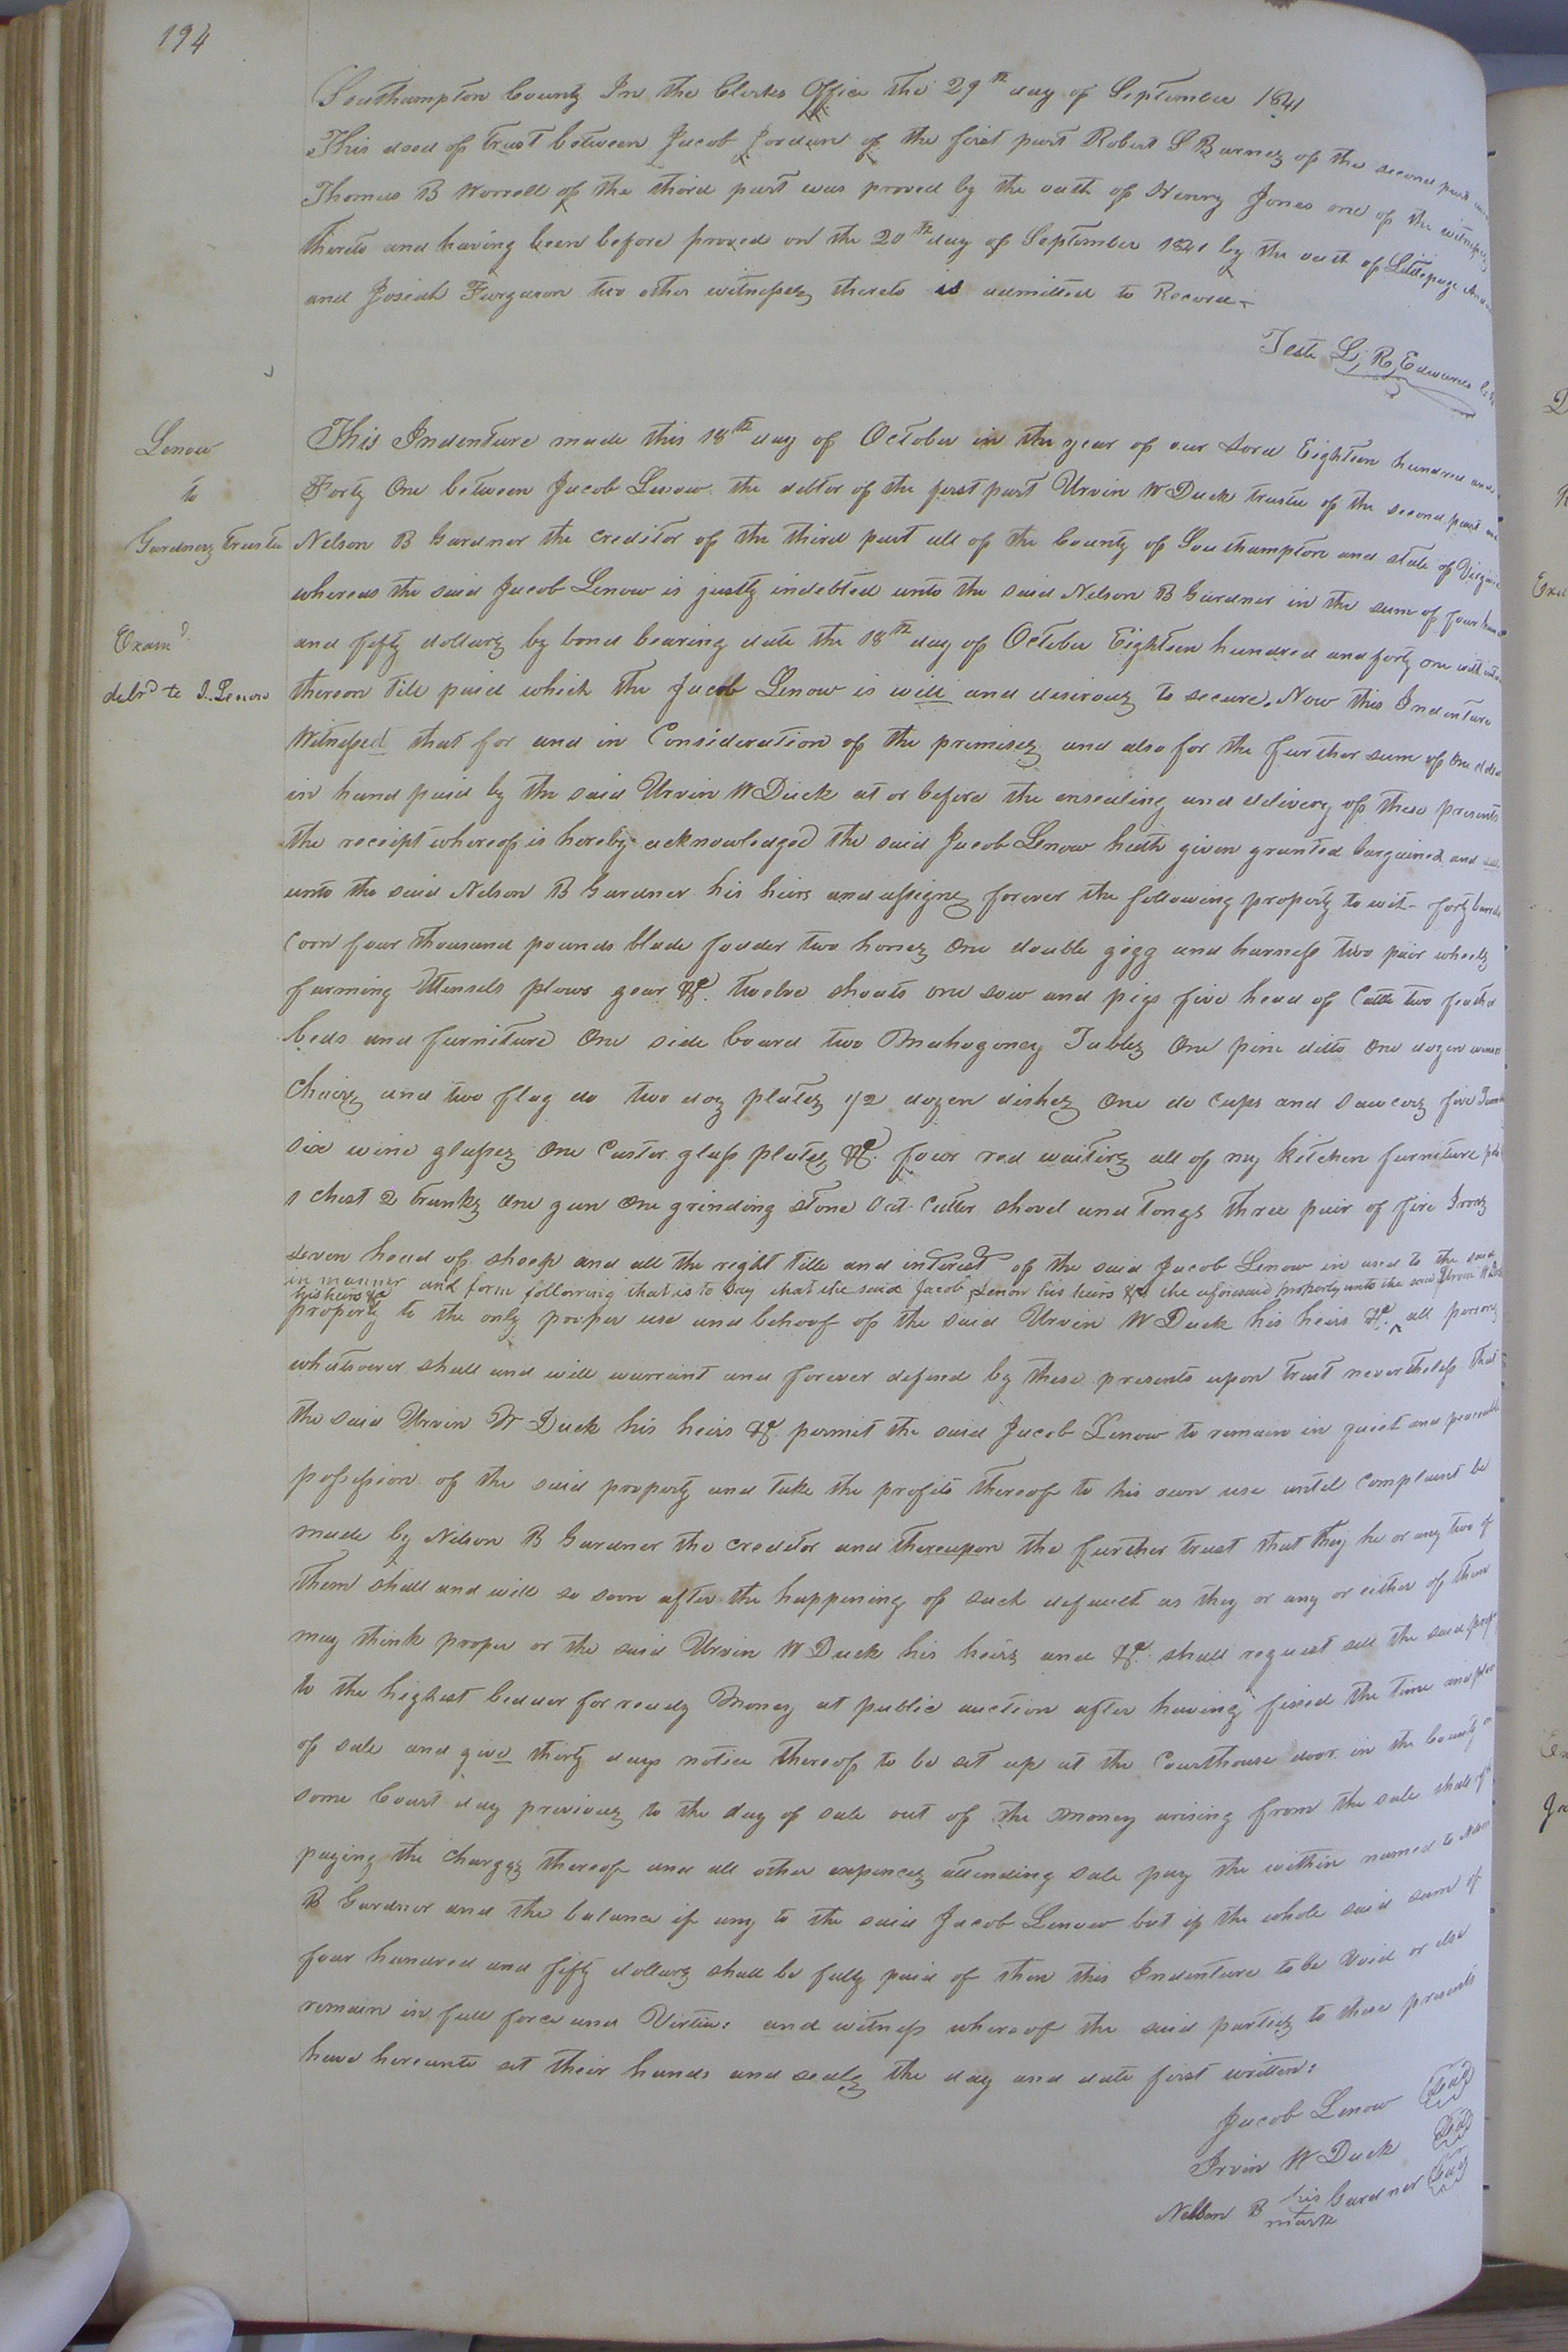 194
Southampton County In the Clerks Office the 29th day of September 1841
This deed of trust between Jacob Jordan of the first part Robert S Barnes of the second part and
Thomas B Worrell of the third part was proved by the oath of Henry Jones one of the witnesses
thereto and having been before proved on the 20th day of September 1841 by the oath of Littlepage
and Josiah Furguson two other witnesses thereto is admitted to Record.
Teste L, R, Edwards
Lenow
to
Gardners Trustee
Examd
delvd to J. Lenow
This Indenture made this 18th day of October in the year of our Lord Eighteen hundred and
Forty One between Jacob Lenow the debtor of the first part Urvin W Duck trustee of the second part and
Nelson B Gardner the creditor of the third part all of the County of Southampton and state of Virginia
whereas the said Jacob Lenow is justly indebted unto the said Nelson B Gardner in the sum of four
and fifty dollars by bond bearing date the 18th day of October Eighteen hundred and forty one with
thereon till paid which the Jacob Lenow is will and desirous to secure. Now this Indenture
Witnessed that for and in Consideration of the premises and also for the further sum of One
in hand paid by the said Urvin W Duck at or before the ensealing and delivery of these presents
the receipt whereof is hereby acknowledged the said Jacob Lenow hath given granted bargained and
unto the said Nelson B Gardner his heirs and assigns forever the following property to wit - forty
Corn four thousand pounds blade fodder two horses One double gigg and harness two pair wheels
farming Utensels plows gear &c. twelve shoats one sow and pigs five head of Cattle two feather
beds and furniture One side board two Mahogoney Tables One pine ditto One dozen
Chairs and two flag do two doz plates 1/2 dozen dishes One do Cups and Saucers five
six wine glasses One Castor glass plates &c. four red waiters all of my kitchen furniture
1 chest 2 trunks One gun One grinding stone Oat Cutter shovel and tongs three pair of fire Irons
seven head of sheep and all the right title and interest of the said Jacob Lenow in and to the said
in manner and form following that is to say that the said Jacob Lenow his heirs &c the aforesaid property unto the said Urvin W Duck
his heirs &c
property to the only proper use and behoof of the said Urvin W Duck his heirs &c. ^ all persons
whatsoever shall and will warrant and forever defend by these presents upon trust nevertheless that
the said Urvin W Duck his heirs &c. permit the said Jacob Lenow to remain in quiet and peaceable
possession of the said property and take the profits thereof to his own use until complaint be
made by Nelson B Gardner the creditor and thereupon the further trust that they he or any two of
them shall and will so soon after the happening of such default as they or any or either of them
may think proper or the said Urvin W Duck his heirs and &c. shall request sell the said
to the highest bedder for ready Money at public auction after having fixed the time and place
of sale and give thirty days notice thereof to be set up at the Courthouse door in the County
some Court day previous to the day of sale out of the Money arising from the sale shall
paying the charges thereof and all other expences attending sale pay the within named to
B Gardner and the balance if any to the said Jacob Lenow but if the whole said sum of
four hundred and fifty dollars shall be fully paid of then this Indenture to be Void or else
remain in full force and Virtue: and witness whereof the said parties to these presents
have hereunto set their hands and seals the day and date first written:
Jacob Lenow Seal
Irvin W Duck Seal
Nelson B his Gardner Seal
mark